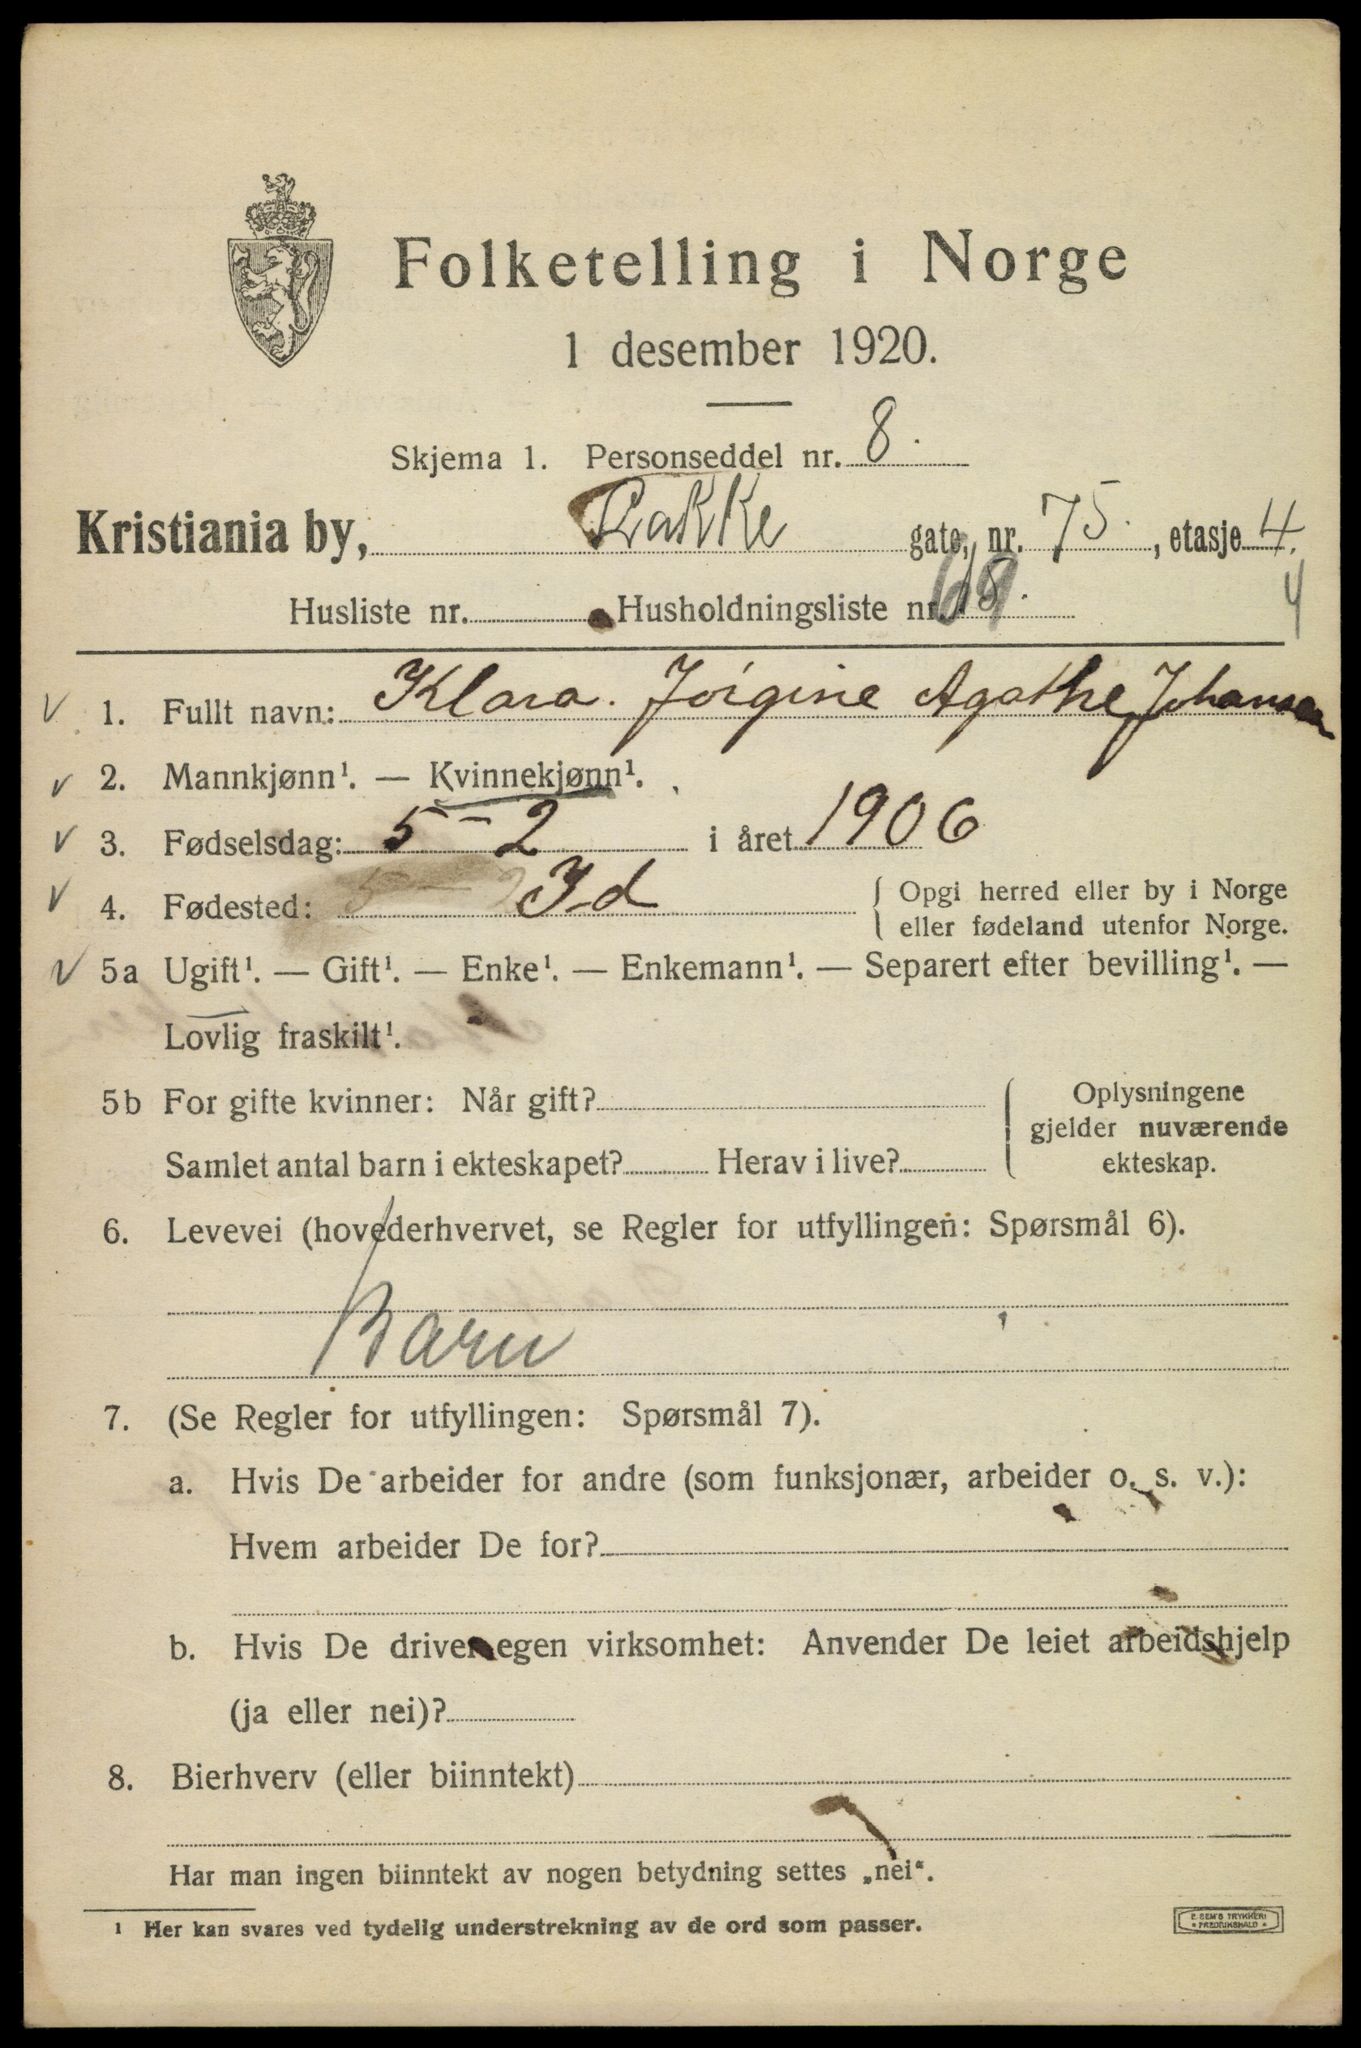 Folketelling i Norge
1 desember 1920.
Skjema 1. Personseddel nr. 8.
Kristiania by, Bakke gate, nr. 75., etasje 4.
Husliste nr. Husholdningsliste nr. 69
4
1. Fullt navn: Klara. Jørgine Agathe Johansen
2. Mannkjønn¹. — Kvinnekjønn¹.
3. Fødselsdag: 5 – 2 i året 1906
4. Fødested: Id { Opgi herred eller by i Norge
eller fødeland utenfor Norge.
5a Ugift¹. — Gift¹. — Enke¹. — Enkemann¹. — Separert efter bevilling¹. —
Lovlig fraskilt¹.
5b For gifte kvinner: Når gift? { Oplysningene
gjelder nuværende
Samlet antal barn i ekteskapet? Herav i live? ekteskap.
6. Levevei (hovederhvervet, se Regler for utfyllingen: Spørsmål 6).
Barn
7. (Se Regler for utfyllingen: Spørsmål 7).
a. Hvis De arbeider for andre (som funksjonær, arbeider o. s. v.):
Hvem arbeider De for?
b. Hvis De driver egen virksomhet: Anvender De leiet arbeidshjelp
(ja eller nei)?
8. Bierhverv (eller biinntekt)
Har man ingen biinntekt av nogen betydning settes „nei“.
¹ Her kan svares ved tydelig understrekning av de ord som passer.
E. SEM'S TRYKKERI
FREDRIKSHALD